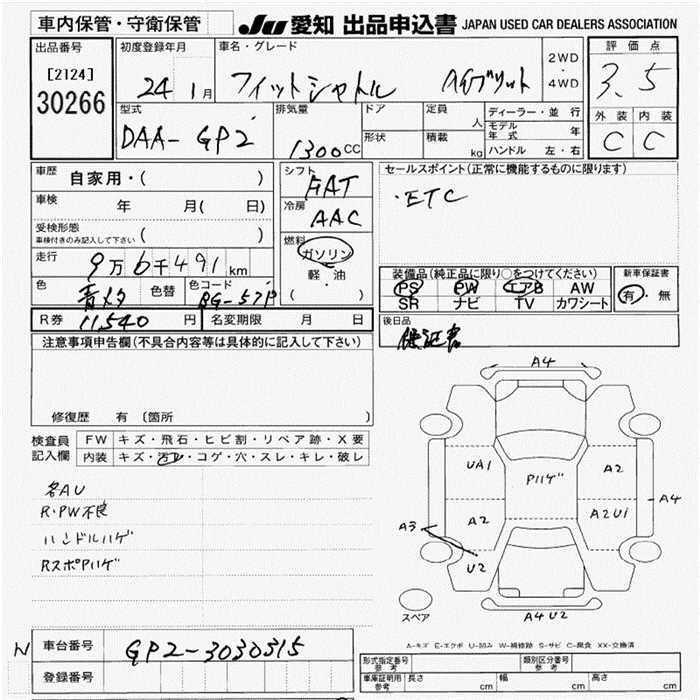 車内保管・守衛保管
JU 愛知 出品申込書 JAPAN USED CAR DEALERS ASSOCIATION
出品番号 [2124] 30266
初度登録年月 24年 1月
車名・グレード フィットシャトル ハイブリット
2WD・4WD
評価点 3.5
外装 C 内装 C
型式 DAA-GP2
排気量 1300CC
ドア
形状
定員 人
積載 kg
ディーラー・並行
モデル年式 年
ハンドル 左・右
車歴 自家用・( )
車検 年 月( 日)
受検形態 ( )
車検付きのみ記入して下さい
走行 9万6千491km
色 青メタ 色替
色コード BG-57P
R券 11,540円
名変期限 月 日
シフト FAT
冷房 AAC
燃料 ガソリン
軽・油
( )
セールスポイント(正常に機能するものに限ります)
・ETC
装備品(純正品に限り○をつけてください)
PS PW エアB AW
SR ナビ TV カワシート
新車保証書
有・無
後日品 保証書
注意事項申告欄(不具合内容等は具体的に記入して下さい)
修復歴 有 〔箇所 〕
検査員記入欄
FW キズ・飛石・ヒビ割・リペア跡・X要
内装 キズ・汚レ・コゲ・穴・スレ・キレ・破レ
各AU
R・PW不良
ハンドルハゲ
RスポPハゲ
A4
UA1
Pハゲ
A2
A4
A3
A2
A2U1
U2
スペア
A4U2
A-キズ E-エクボ U-凹み W-補修跡 S-サビ C-腐食 XX-交換済
N 車台番号 GP2-3030315
登録番号
形式指定番号 参考
類別区分番号 参考
車庫証明用 参考 長さ cm 幅 cm 高さ cm